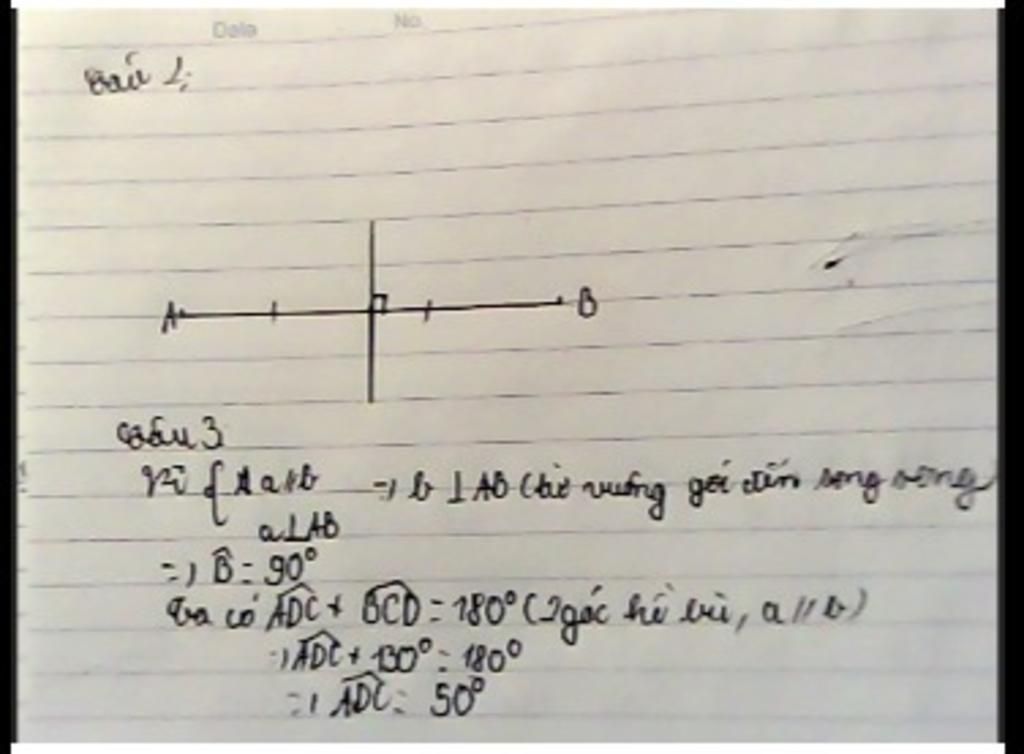 Date No.
Câu 1:
A B
Câu 3
Vì { a // b => b ⊥ AB (từ vuông góc đến song song
a ⊥ AB
=> B̂ = 90°
Ta có ADC + BCD = 180° (2 góc kề bù, a // b)
=> ADC + 130° = 180°
=> ADC = 50°